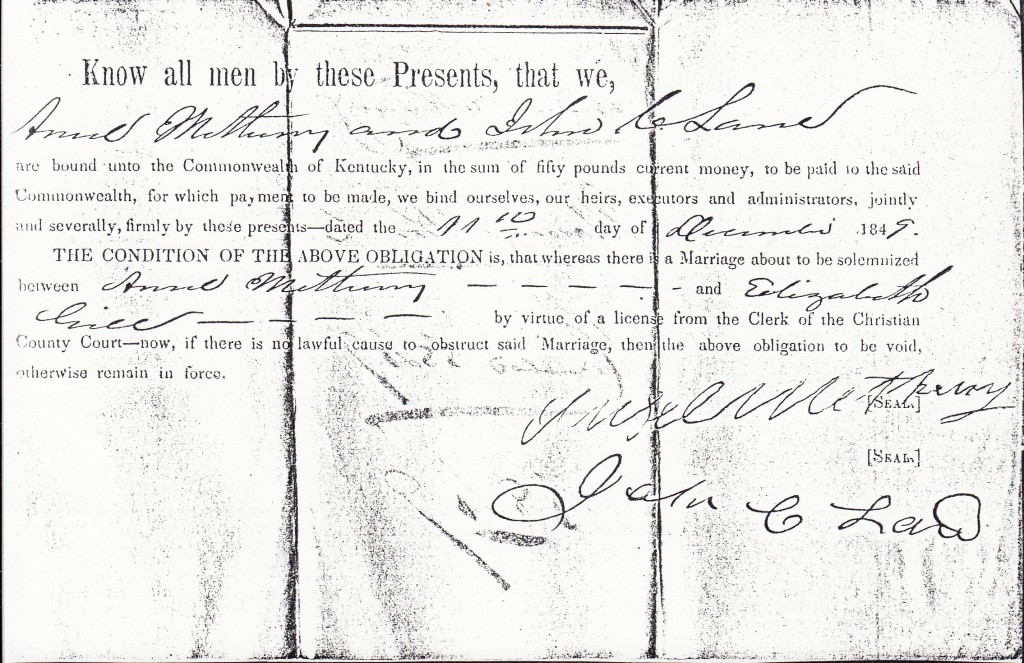 Know all men by these Presents, that we,
and John C. Land
are bound unto the Commonwealth of Kentucky, in the sum of fifty pounds current money, to be paid to the said
Commonwealth, for which payment to be made, we bind ourselves, our heirs, executors and administrators, jointly
and severally, firmly by these presents—dated the 11th day of December 1849.
THE CONDITION OF THE ABOVE OBLIGATION is, that whereas there is a Marriage about to be solemnized
between — — — — — - and Elizabeth
Gill — — — — by virtue of a license from the Clerk of the Christian
County Court—now, if there is no lawful cause to obstruct said Marriage, then the above obligation to be void,
otherwise remain in force.
[SEAL.]
[SEAL.]
John C Land